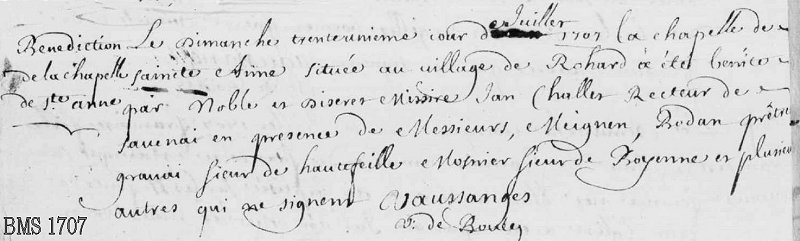 Benediction Le Dimanche trenteunieme jour de Juillet 1707 la chapelle de
de la chapelle saincte Anne située au village de Rohard a été benite
de ste anne par Noble et Discret Missire Jan Challet Recteur de
savenai en presence de Messieurs, Meignen, Bodan prêtre
granai sieur de hautefeille Mosnier sieur de Boyenne et plusieu
autres qui ne signent Vaussanges
v. de
BMS 1707